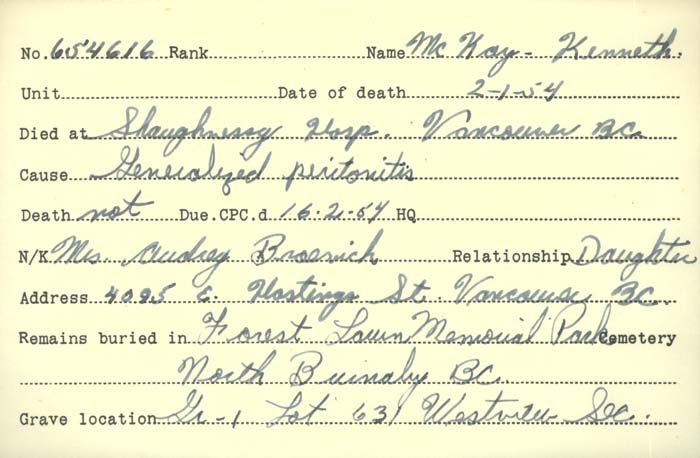 No. 654616 Rank Name McKay - Kenneth.
Unit Date of death 2-1-54
Died at Shaughnessy Hosp. Vancouver BC.
Cause Generalized peritonitis
Death not Due.CPC.d 16-2-54 HQ
N/K Mrs. Audrey Relationship Daughter
Address 4095 E. Hastings St. Vancouver BC.
Remains buried in Forest Lawn Memorial Park Cemetery
North Burnaby BC.
Grave location Gr-1 Lot 631 Westview Sec.